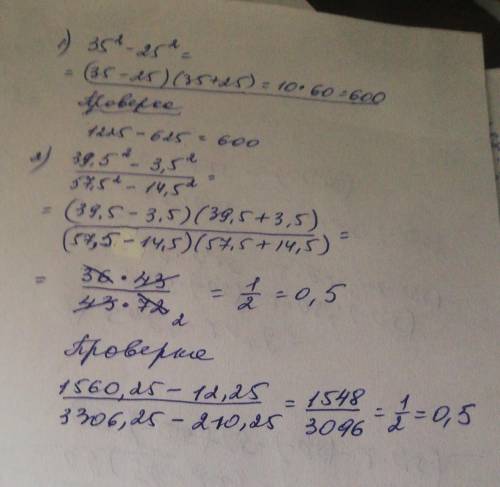 1) 35² - 25² =
= (35 - 25)(35 + 25) = 10 · 60 = 600
Проверка
1225 - 625 = 600
2) 39,5² - 3,5²
57,5² - 14,5² =
= (39,5 - 3,5)(39,5 + 3,5)
(57,5 - 14,5)(57,5 + 14,5) =
= 36 · 43
43 · 72 2 = 1/2 = 0,5
Проверка
1560,25 - 12,25
3306,25 - 210,25 = 1548/3096 = 1/2 = 0,5